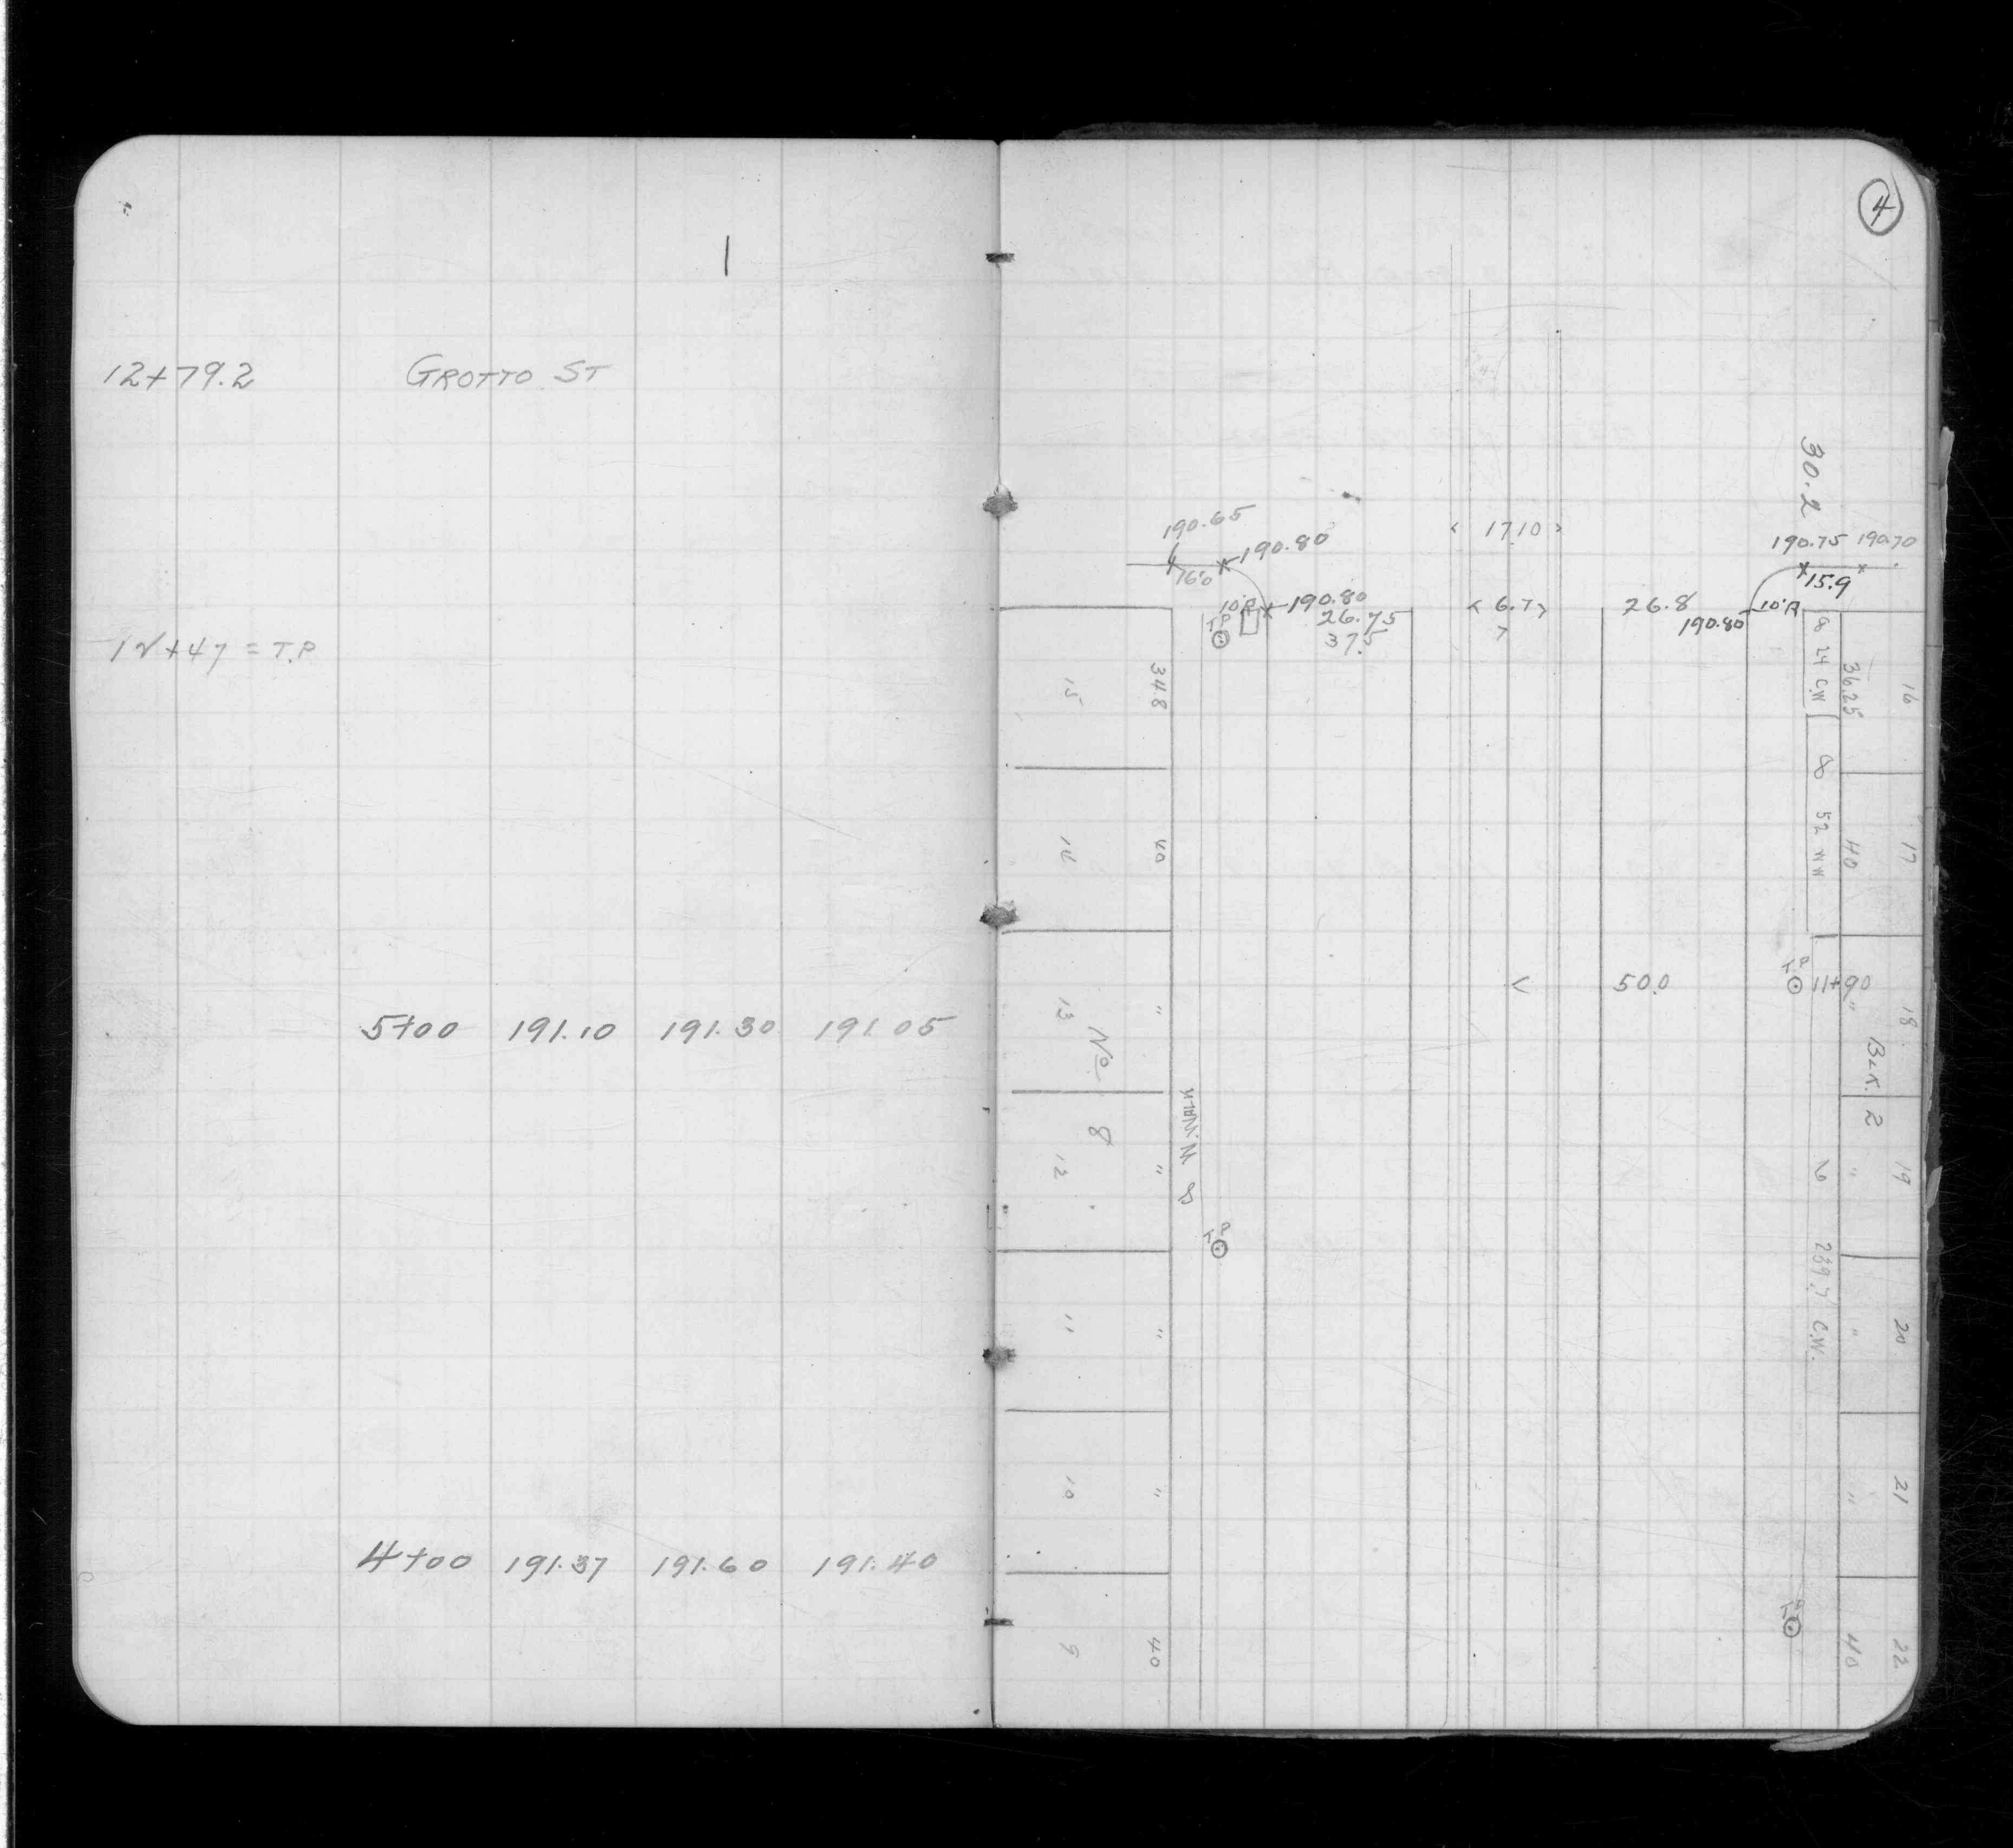 4
12+79.2 GROTTO ST
12+47 = T.P
5+00 191.10 191.30 191.05
4+00 191.37 191.60 191.40
30.2
190.65
190.80
< 17.10 >
190.75 190.70
16.0
15.9
10'R
190.80
26.75
37.5
< 6.7 >
26.8
190.80
10'R
T.P
34.8
15
40
14
"
13
No 8
"
12
"
11
"
10
40
9
8 W.WALK
T.P
8 24 C.W
36.25
16
8 52 WW
40
17
< 50.0
T.P
11+90
"
18
BLK. 2
"
19
6 239.7 C.W.
"
20
"
21
T.P
40
22